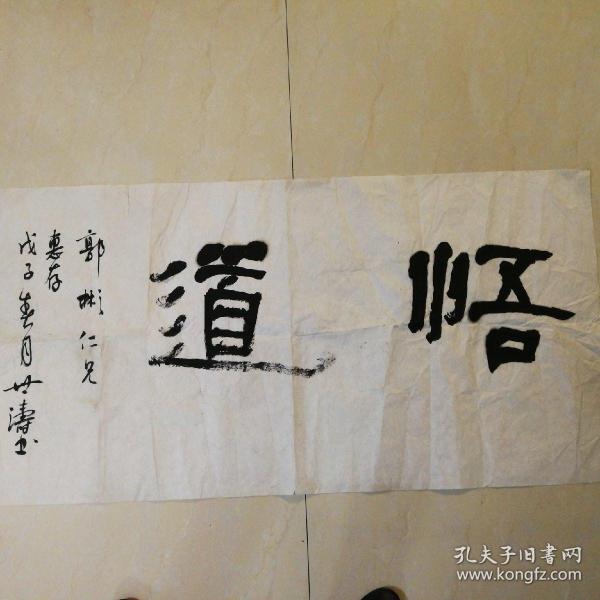 悟道
郭彬仁兄
惠存
戊子春月世涛书
孔夫子旧書网
www.kongfz.com